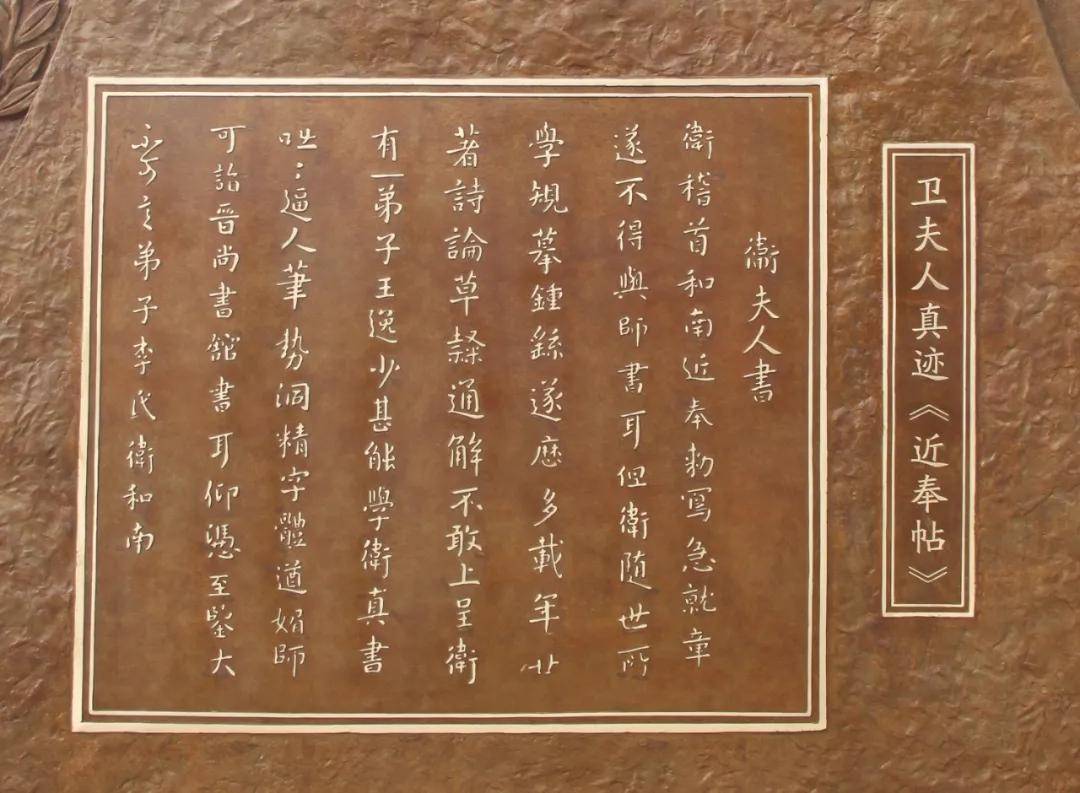 卫夫人真迹《近奉帖》
衛夫人書
衛稽首和南近奉勑寫急就章
遂不得與師書耳但衛随世所
學規摹鍾繇遂歷多載年廿
著詩論草隸通解不敢上呈衛
有一弟子王逸少甚能學衛真書
咄〻逼人筆勢洞精字體遒媚師
可詣晉尚書舘書耳仰憑至鑒大
不可言弟子李氏衛和南